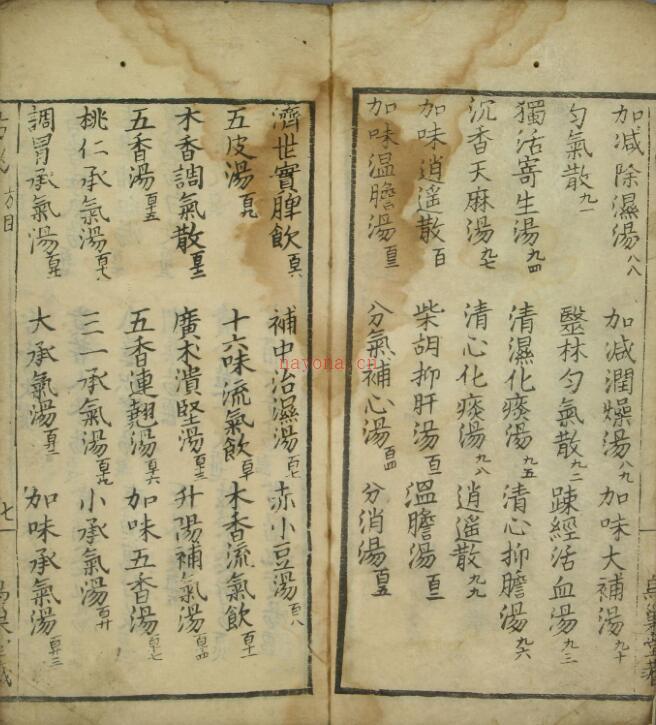 加减除濕湯八八 加减潤燥湯八九 加味大補湯九十
匀氣散九一 醫林匀氣散九二 踈經活血湯九三
獨活寄生湯九四 清濕化痰湯九五 清心抑膽湯九六
沉香天麻湯九七 清心化痰湯九八 逍遥散九九
加味逍遥散百 柴胡抑肝湯百一 溫膽湯百二
加味溫膽湯百三 分氣補心湯百四 分消湯百五
濟世實脾飲百六 補中治濕湯百七 赤小豆湯百八
五皮湯百九 十六味流氣飲百十 木香流氣飲百十一
木香調氣散百十二 廣朮潰堅湯百十三 升陽補氣湯百十四
五香湯百十五 五香連翹湯百十六 加味五香湯百十七
桃仁承氣湯百十八 三一承氣湯百十九 小承氣湯百廿
調胃承氣湯 大承氣湯 加味承氣湯百廿三
方目 七
nayona.cn